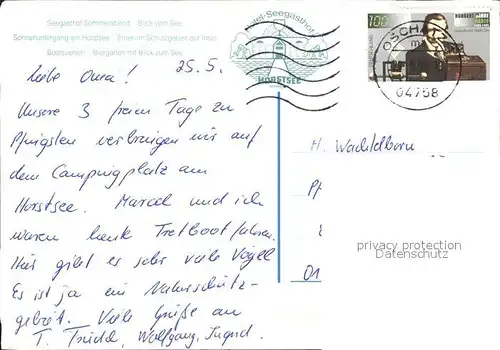 Seegasthof Sommerabend Blick vom See
Sonnenuntergang am Horstsee Enten im Schutzgebiet der Insel
Bootsverleih Biergarten mit Blick zum See
Insel-Seegasthof
HORSTSEE
100
HUNDERT JAHRE
OSCHATZ
04758
25.5.
liebe Oma!
Unsere 3 freien Tage zu
Pfingsten verbringen wir auf
dem Campingplatz am
Horstsee. Marcel und ich
waren heute Tretboot fahren.
Hier gibt es sehr viele Vögel
Es ist ja ein Naturschutz-
gebiet. Viele Grüße an
T. Trudel, Wolfgang,
H. Wachtelborn
Pf
01
privacy protection
Datenschutz